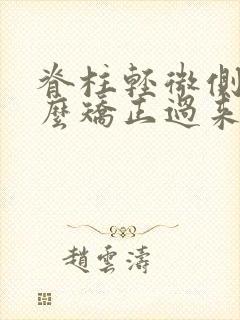 脊柱輕微側
麼矯正過来
趙雲濤